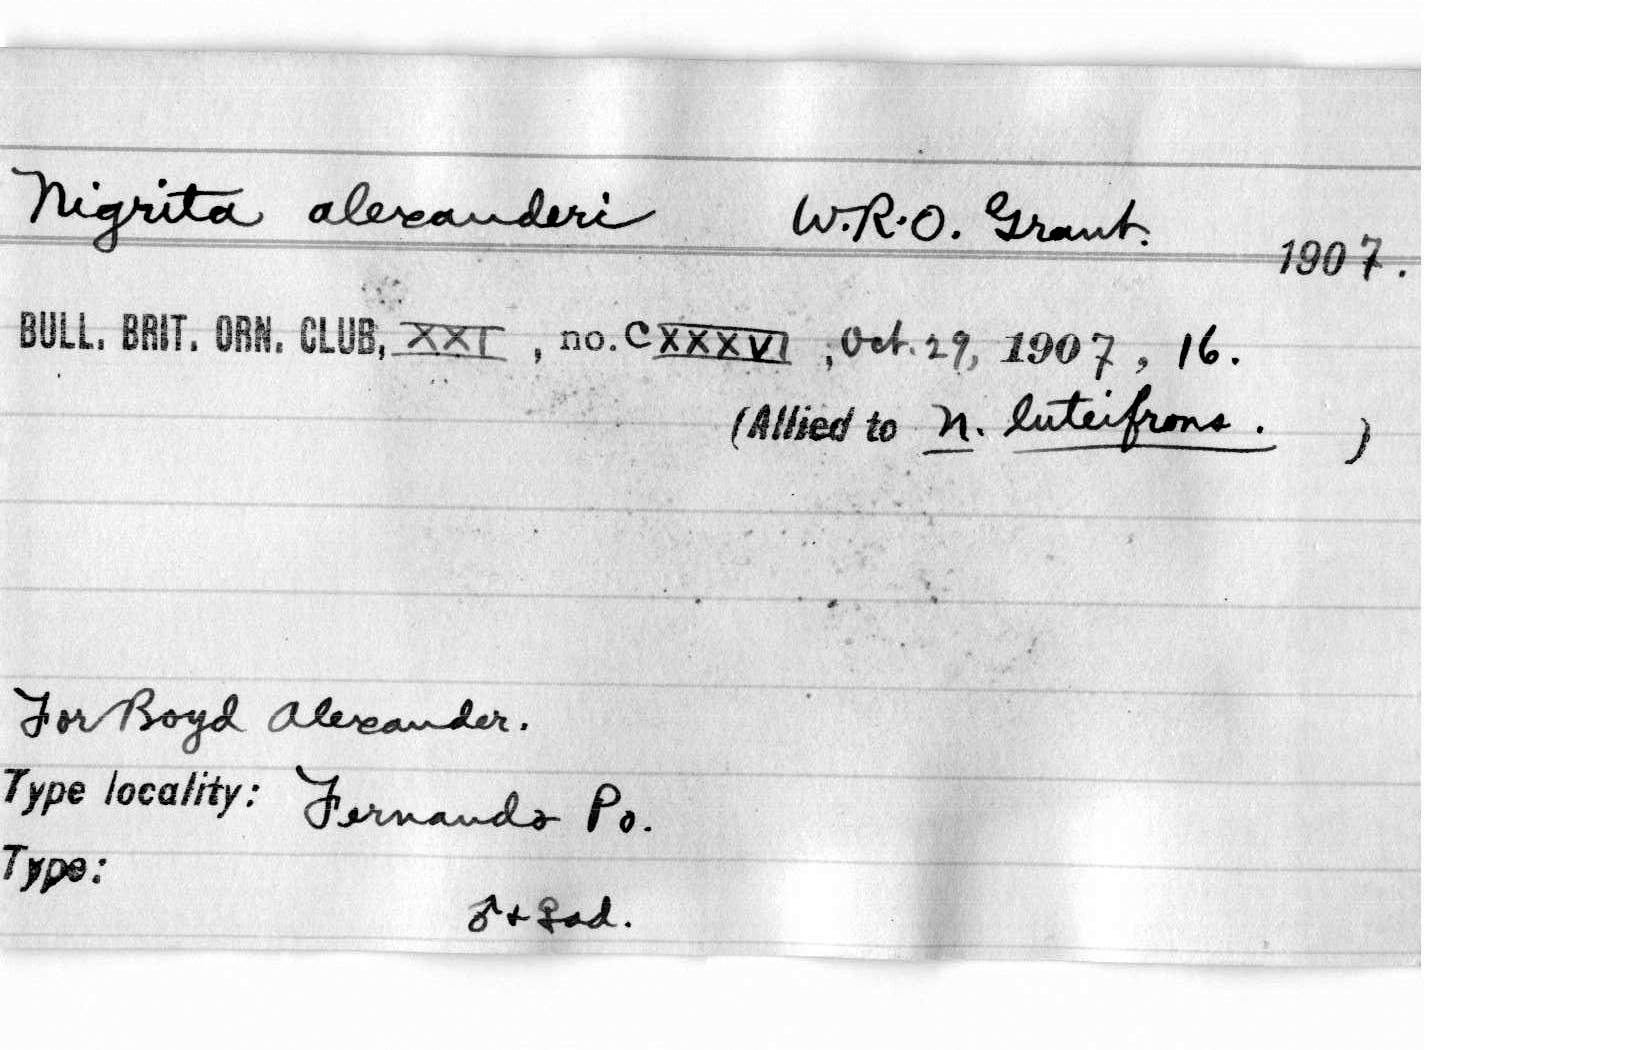 Nigrita alexanderi W.R.O. Grant. 1907.
BULL. BRIT. ORN. CLUB, XXI, no. CXXXVI, Oct. 29, 1907, 16.
(Allied to N. luteifrons. )
For Boyd Alexander.
Type locality: Fernando Po.
Type:
♂ + ♀ ad.